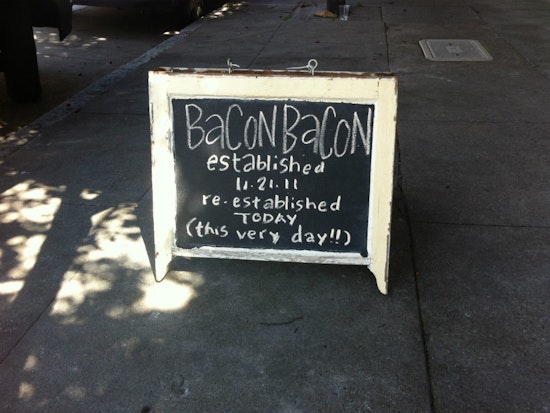 BaCON BaCON
established
11.21.11
re-established
TODAY
(this very day!!)